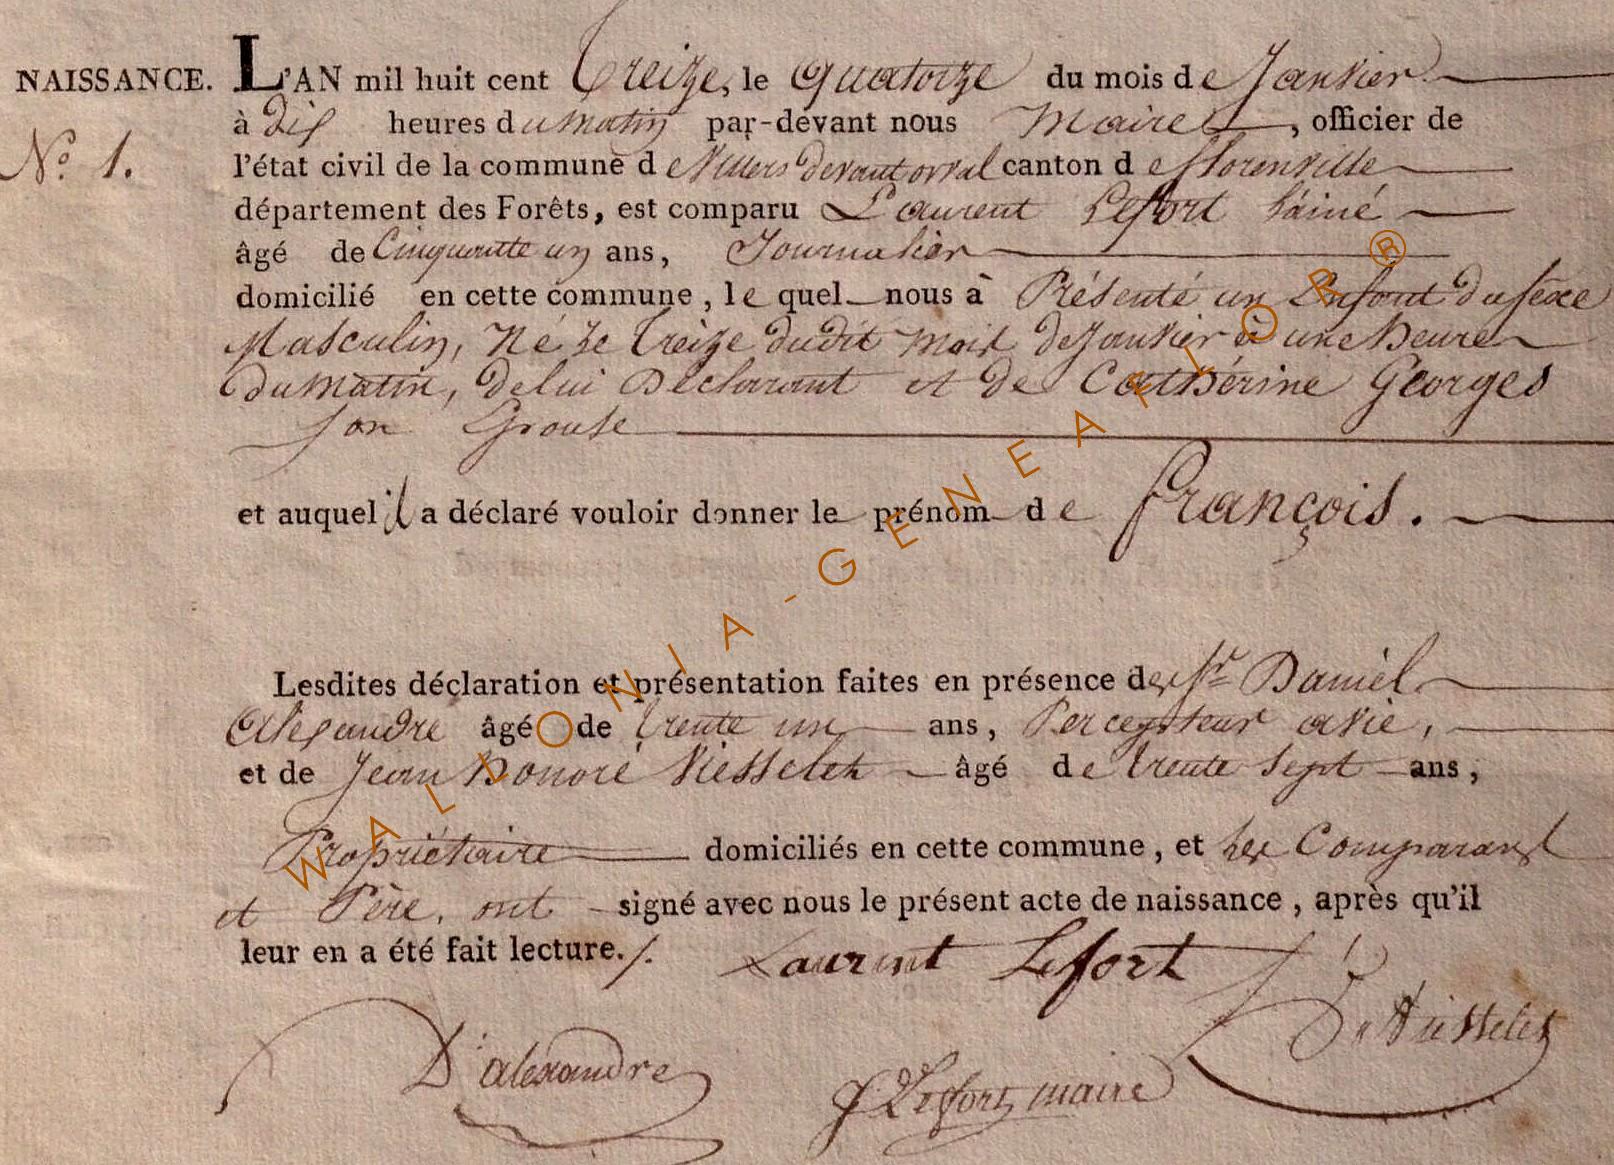 NAISSANCE. L'AN mil huit cent treize, le quatorze du mois de Janvier
à dix heures du matin par-devant nous Maire, officier de
N.° 1. l'état civil de la commune de Villers devant orval canton de florenville
département des Forêts, est comparu Laurent Lefort l'ainé
âgé de Cinquante un ans, Journalier
domicilié en cette commune, le quel nous à Présenté un Enfant du sexe
Masculin, Né le treize dudit mois de Janvier à une heure
du matin, de lui Déclarant et de Cathérine Georges
son Epouse
et auquel il a déclaré vouloir donner le prénom de françois.
Lesdites déclaration et présentation faites en présence des Sr Daniel
Alexandre âgé de trente un ans, Percepteur a vie,
et de Jean Honoré Visselet âgé de trente sept ans,
Propriétaire domiciliés en cette commune, et les Comparans
et Père, ont signé avec nous le présent acte de naissance, après qu'il
leur en a été fait lecture./. Laurent Lefort
D'alexandre J Lefort maire
WALLONIA-GENEAFLOR®